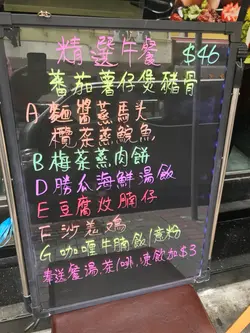 精選午餐 $46
蕃茄薯仔煲豬骨
A 麵醬蒸馬头
欖菜蒸鯇魚
B 梅菜蒸肉餅
D 勝瓜海鮮湯飯
E 豆腐炆腩仔
F 沙羌鸡
G 咖喱牛腩飯/意粉
奉送餐湯.茶/啡,凍飲加$3